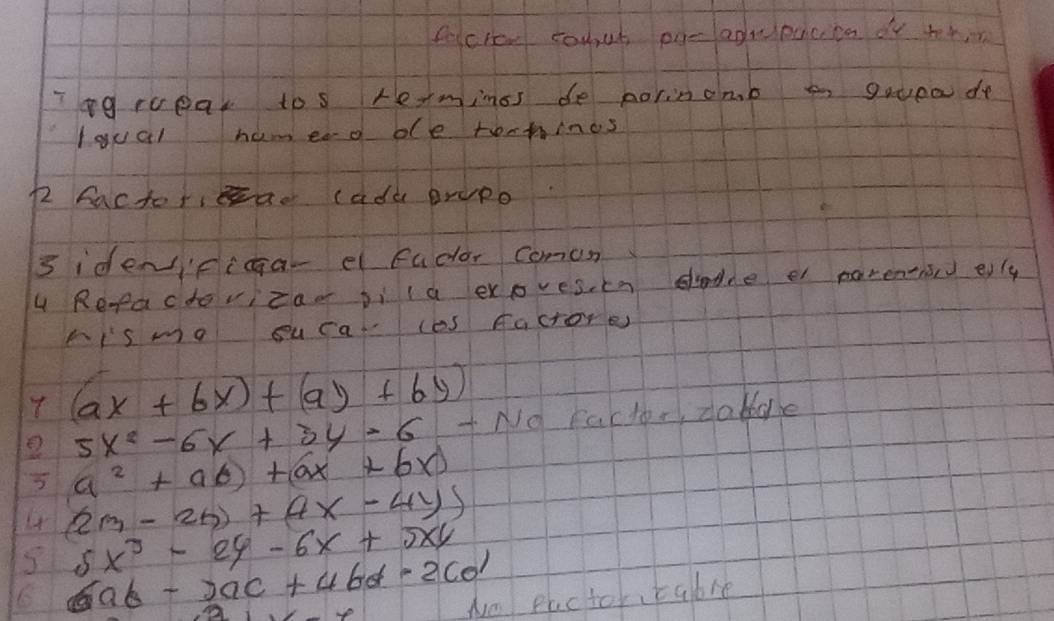 factor comun por agrupacion de termin
1 agrupar los terminos de polinomio en grupo de
igual numero de terminos
2 factorizar cada grupo
3 identificar el factor comun
4 Refactorizar si la expresion donde el parentisis es la
misma sucar los factores
1 (ax + bx) + (ay + by)
2 3x² - 6x + 3y - 6 - No factorizable
3 (a² + ab) + (ax + bx)
4 (2m - 2n) + (4x - 4y)
5 5x³ - 2y - 6x + 3xy
6 6ab - 3ac + 4bd - 2cd
No factorizable